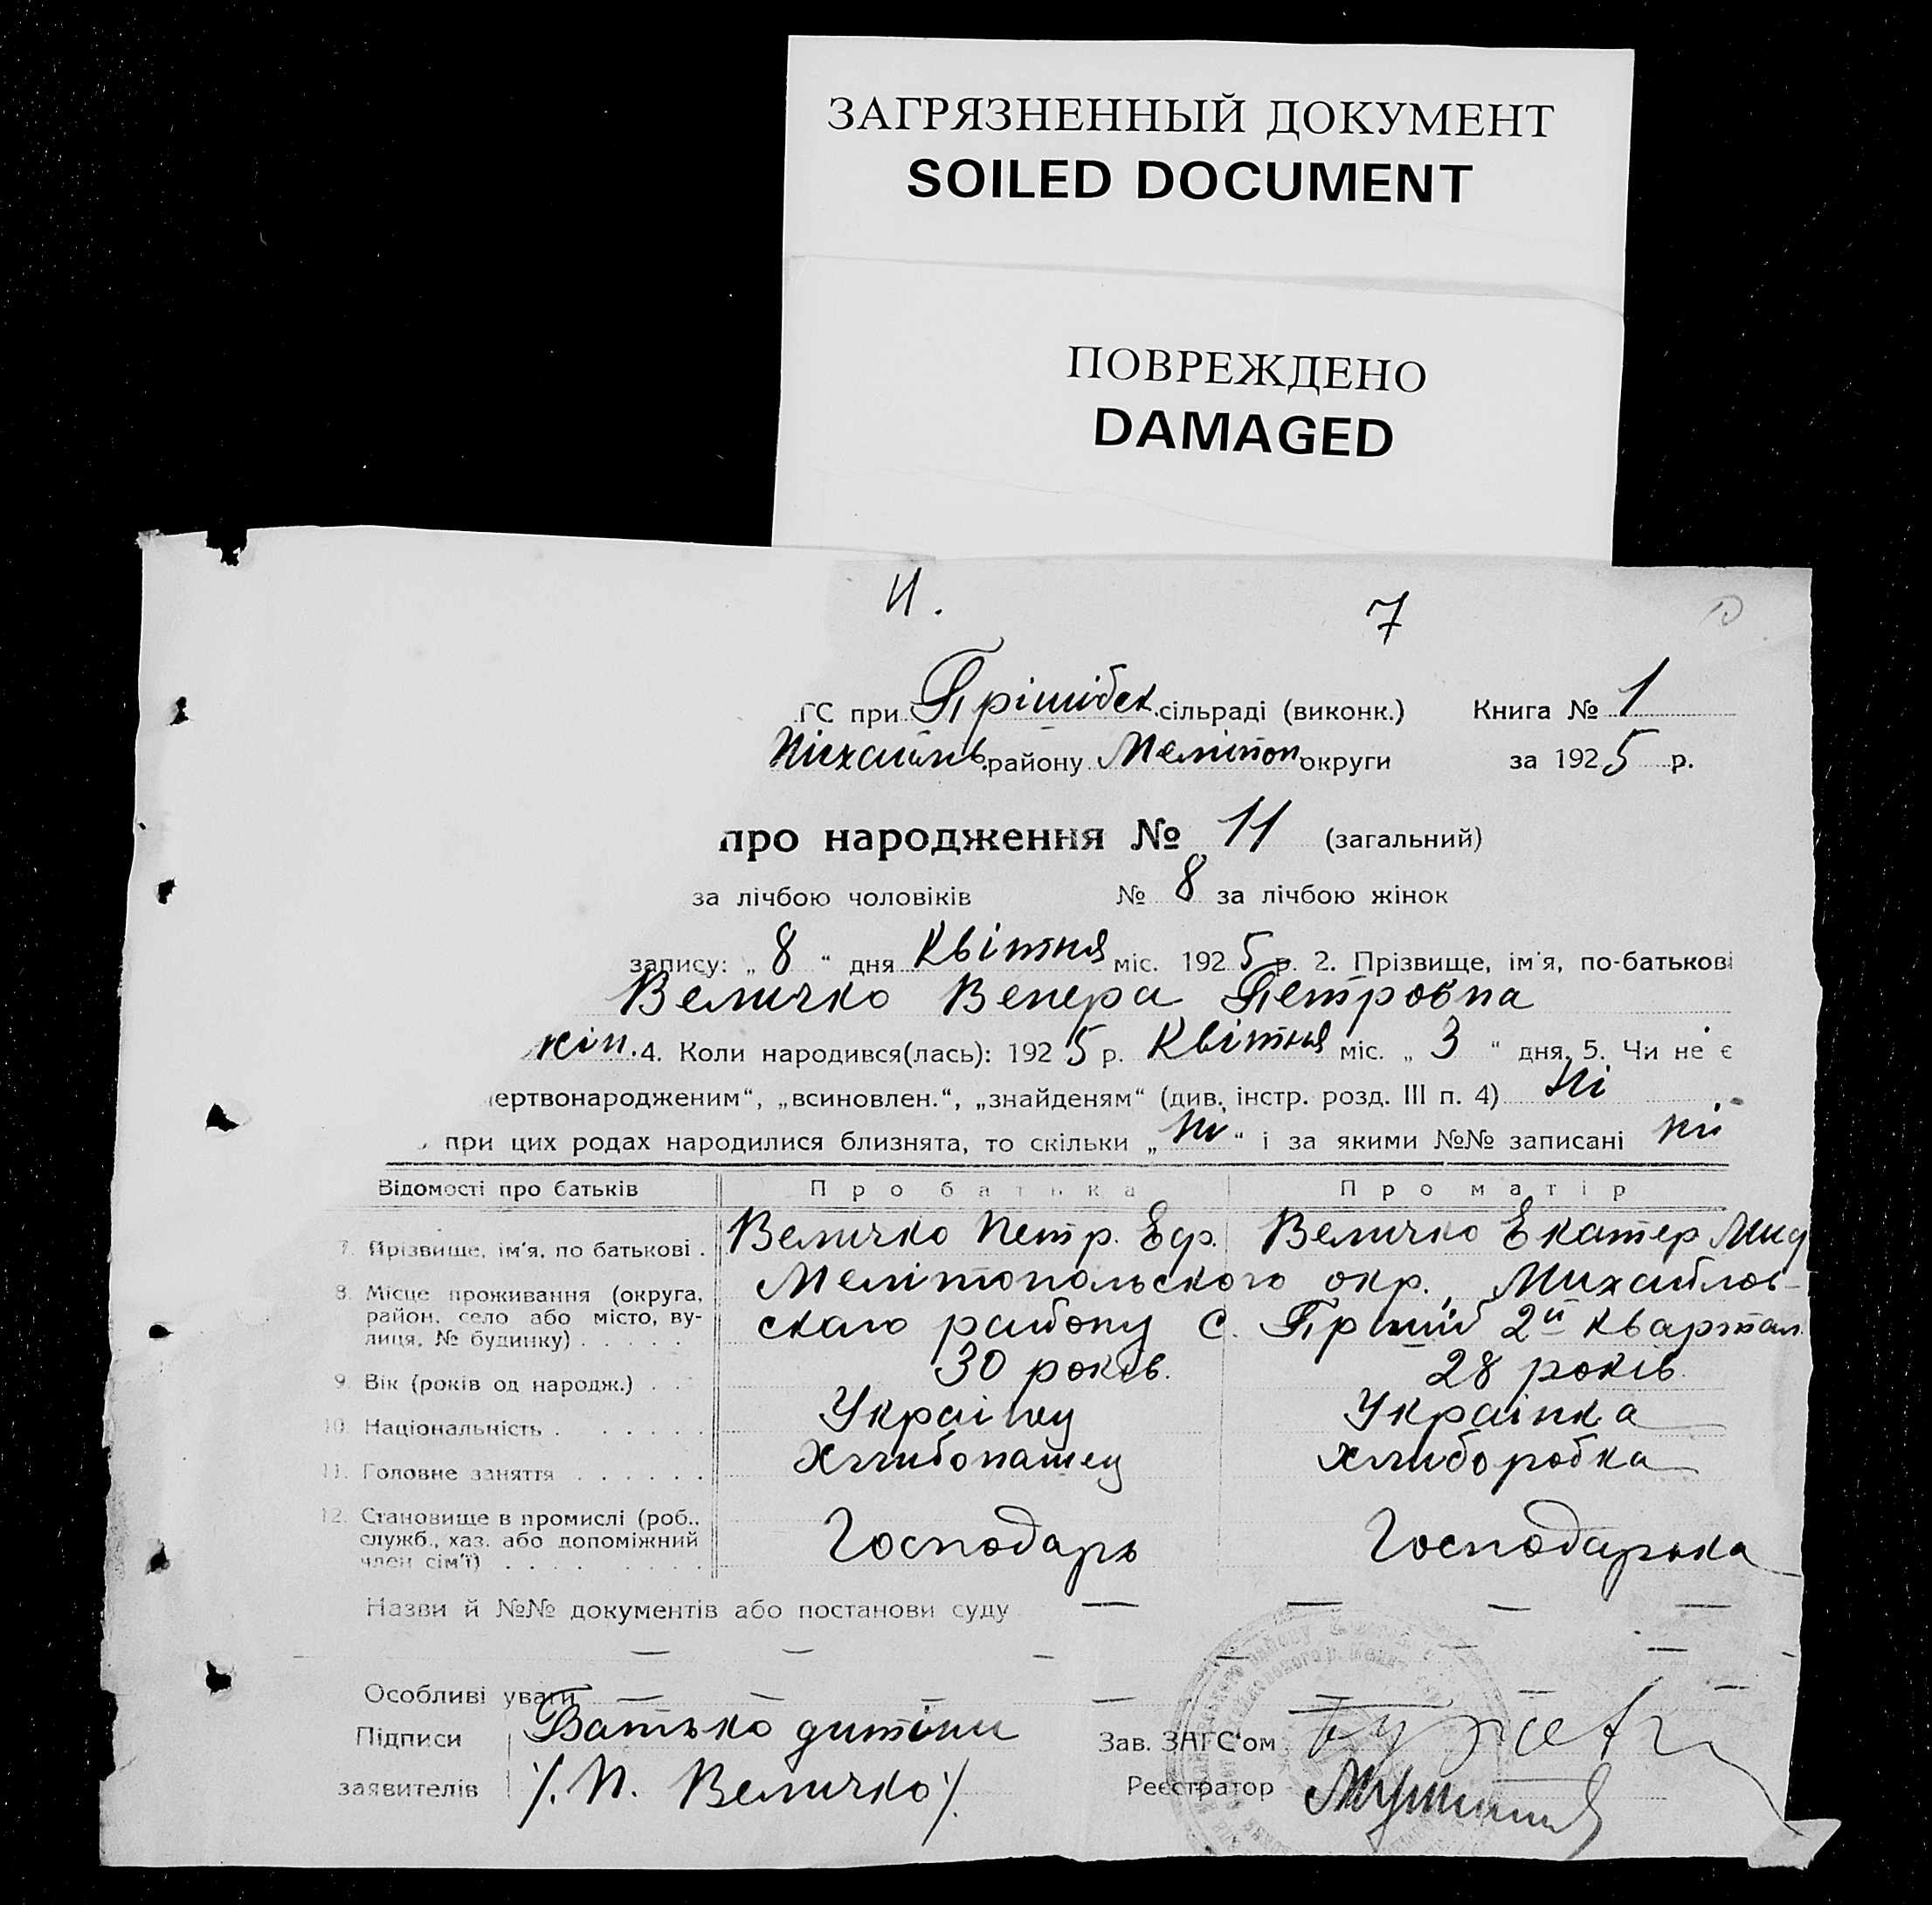 ЗАГРЯЗНЕННЫЙ ДОКУМЕНТ
SOILED DOCUMENT
ПОВРЕЖДЕНО
DAMAGED
7
ГС при Прішібск. сільраді (виконк.) Книга № 1
Михайлів. району Мелітоп округи за 1925 р.
про народження № 11 (загальний)
за лічбою чоловіків № 8 за лічбою жінок
запису: „ 8 “ дня Квітня міс. 1925 р. 2. Прізвище, ім'я, по-батькові
Величко Венера Петровна
жін. 4. Коли народився(лась): 1925 р. Квітня міс. „ 3 “ дня, 5. Чи не є
ертвонародженим“, „всиновлен.“, „знайденям“ (див. інстр. розд. III п. 4) Ні
при цих родах народилися близнята, то скільки „ Ні “ і за якими №№ записані ні
Відомості про батьків Про батька Про матір
7. Прізвище, ім'я, по батькові . Величко Петр. Ефр. Величко Екатер
8. Місце проживання (округа, Мелітопольского окр., Михайлов-
район, село або місто, ву- скаго району с. Пришиб 2й квартал
лиця, № будинку) . . . . .
9. Вік (років од народж.) . . 30 років. 28 років.
10. Національність . . . . . . Украінец Украінка
11. Головне заняття . . . . . . Хлибопашец хлиборобка
12. Становище в промислі (роб., Господарь Господарька
служб., хаз. або допоміжний
член сім'ї) . . . . . . . .
Назви й №№ документів або постанови суду — — — —
— — — — — —
Особливі уваги — — — — — — —
Підписи Батько дитіни Зав. ЗАГС'ом
заявителів /. П. Величко /. Реєстратор